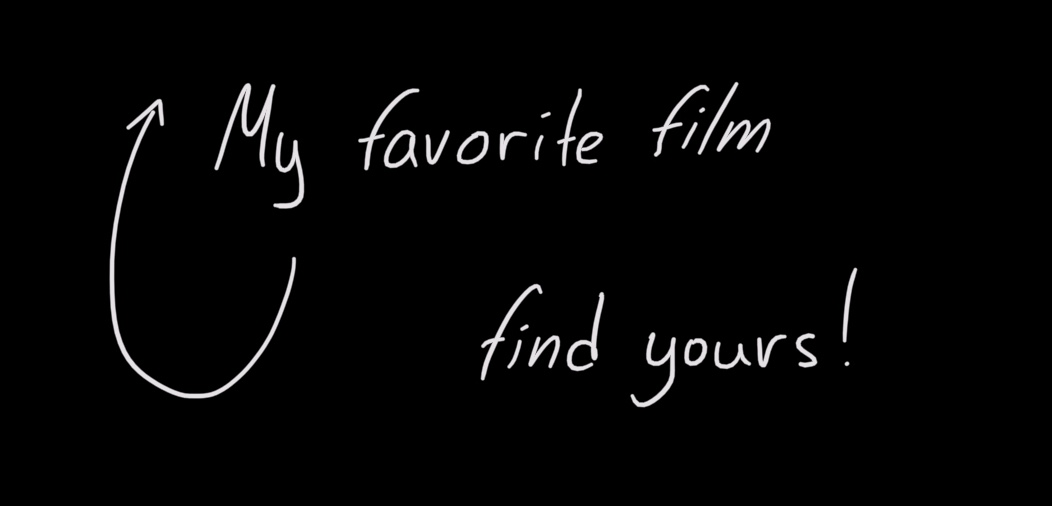 My favorite film
find yours!